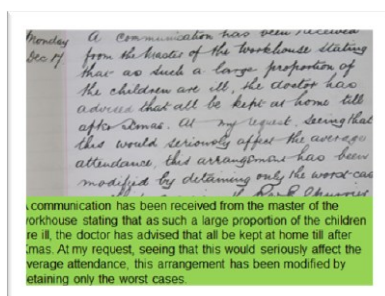 Monday
Dec 17
A communication has been received
from the Master of the Workhouse stating
that as such a large proportion of
the children are ill, the doctor has
advised that all be kept at home till
after Xmas. At my request, seeing that
this would seriously affect the average
attendance, this arrangement has been
modified by detaining only the worst cas
communication has been received from the master of the
workhouse stating that as such a large proportion of the children
re ill, the doctor has advised that all be kept at home till after
mas. At my request, seeing that this would seriously affect the
verage attendance, this arrangement has been modified by
etaining only the worst cases.